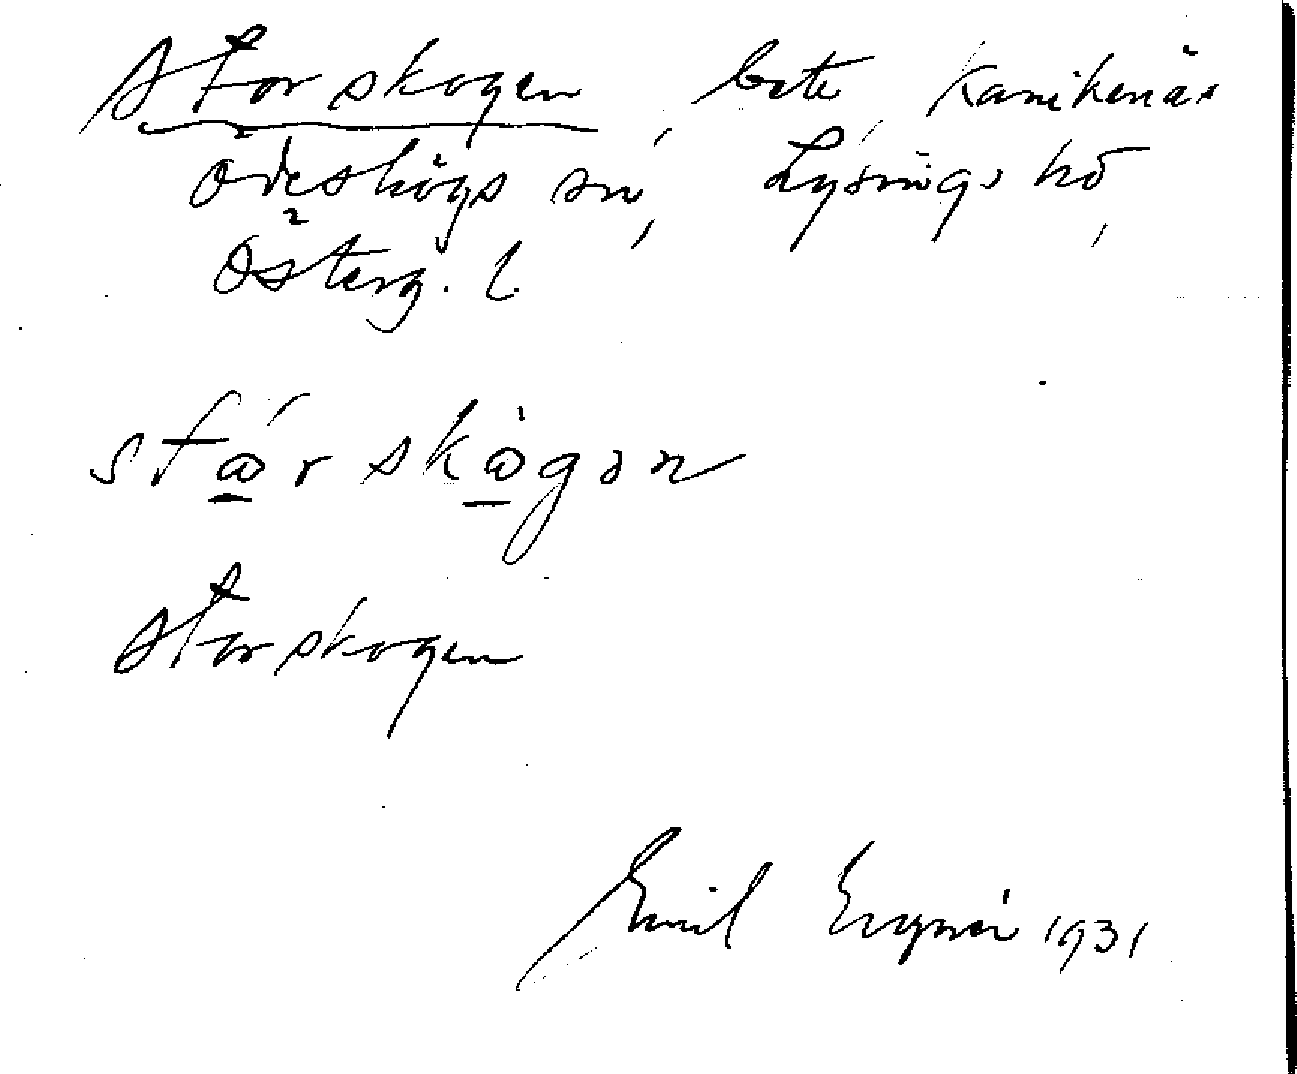 Storskogen, bete Kanikenäs
Ödeshögs sn, Lysings hd,
Österg. l.
stǻrskø̀gən
Storskogen
Emil 1931